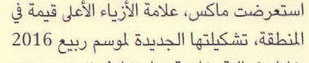 استعرضت ماكس، علامة الأزياء الأعلى قيمة في
المنطقة، تشكيلتها الجديدة لموسم ربيع 2016